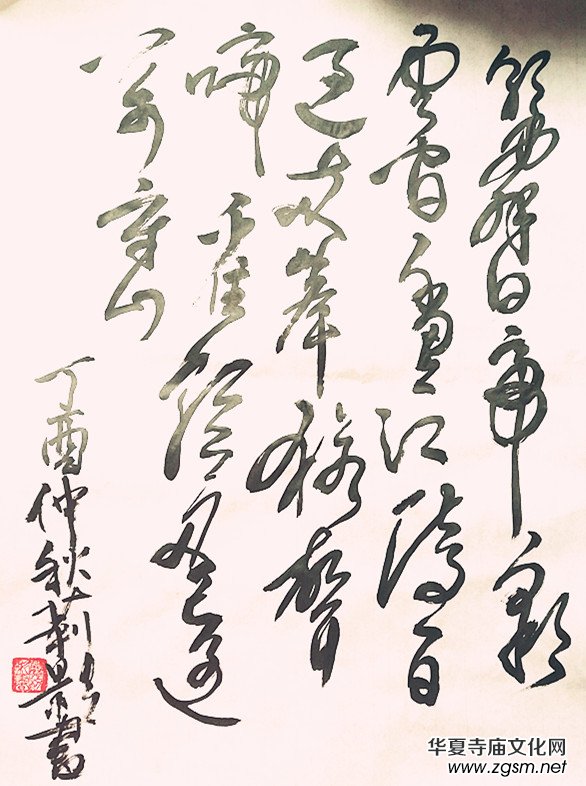 朝辭白帝彩
雲間千里江陵一日
還兩岸猿聲
啼不住輕舟已過
萬重山
丁酉仲秋 書
华夏寺庙文化网
www.zgsm.net